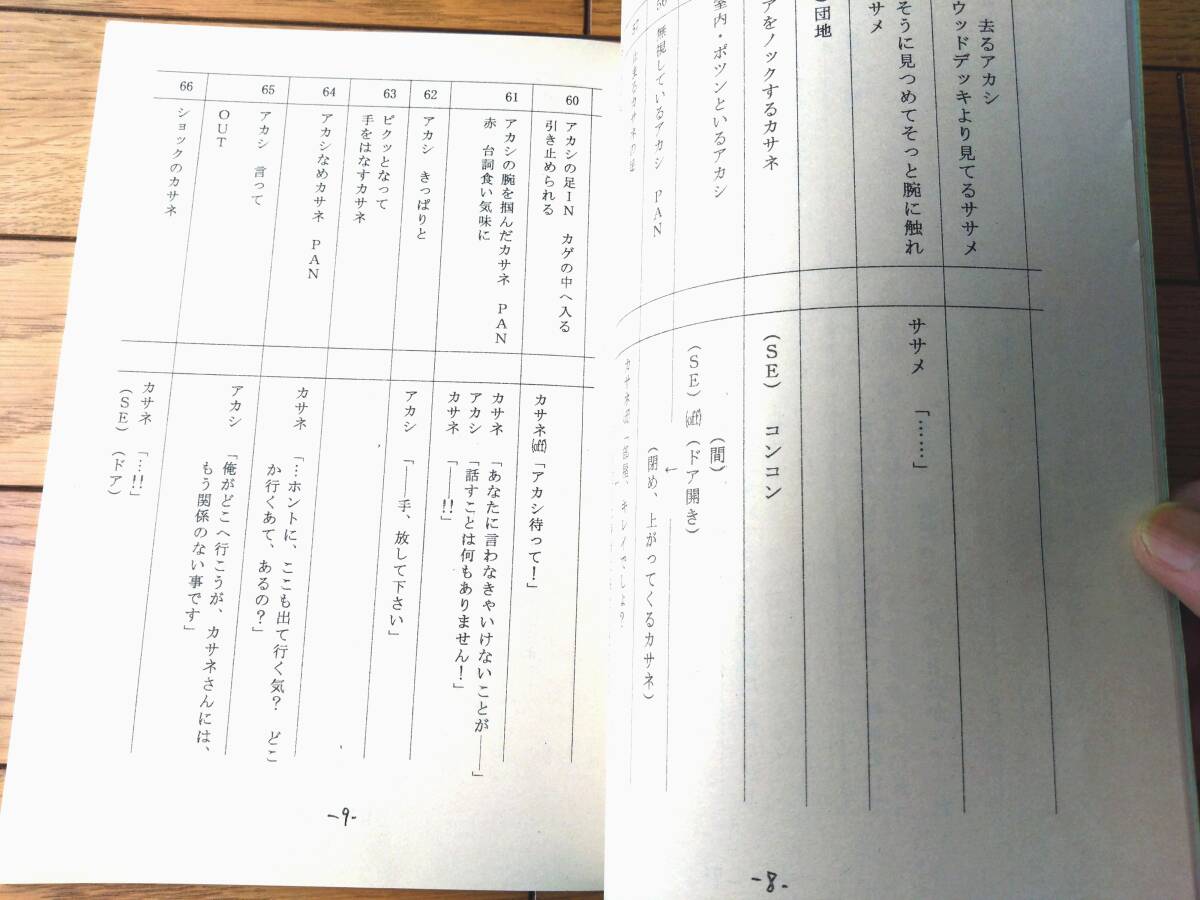 去るアカシ
ウッドデッキより見てるササメ
そうに見つめてそっと腕に触れ
サメ
ササメ 「……」
団地
アをノックするカサネ
(SE) コンコン
室内・ポツンといるアカシ
(間)
(SE) (off) (ドア開き)
↓
(閉め、上がってくるカサネ)
56
無視しているアカシ PAN
57
キレイでしょ?
-8-
60
アカシの足IN カゲの中へ入る
引き止められる
カサネ(off) 「アカシ待って!」
61
アカシの腕を掴んだカサネ PAN
赤 台詞食い気味に
カサネ 「あなたに言わなきゃいけないことが――」
アカシ 「話すことは何もありません!」
カサネ 「――!!」
62
アカシ きっぱりと
アカシ 「――手、放して下さい」
63
ピクッとなって
手をはなすカサネ
64
アカシなめカサネ PAN
カサネ 「…ホントに、ここも出て行く気? どこ
か行くあて、あるの?」
65
アカシ 言って
OUT
アカシ 「俺がどこへ行こうが、カサネさんには、
もう関係のない事です」
66
ショックのカサネ
カサネ 「…!!」
(SE) (ドア)
-9-